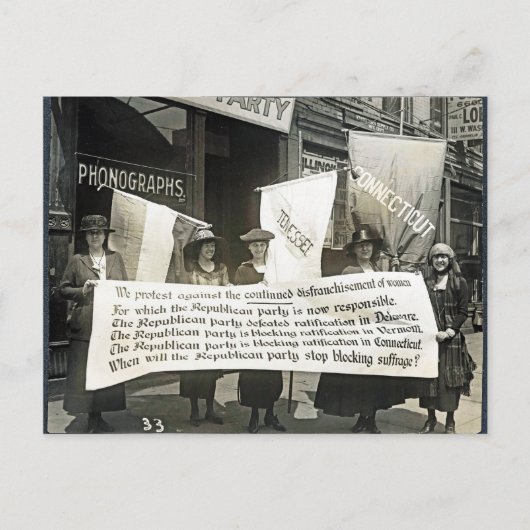 PARTY
PHONOGRAPHS.
ILLINOI
TENESSEE
CONNECTICUT
LOB
111 W. WAS
We protest against the continued disfranchisement of women
For which the Republican party is now responsible.
The Republican party defeated ratification in Delaware.
The Republican party is blocking ratification in Vermont.
The Republican party is blocking ratification in Connecticut.
When will the Republican party stop blocking suffrage?
33